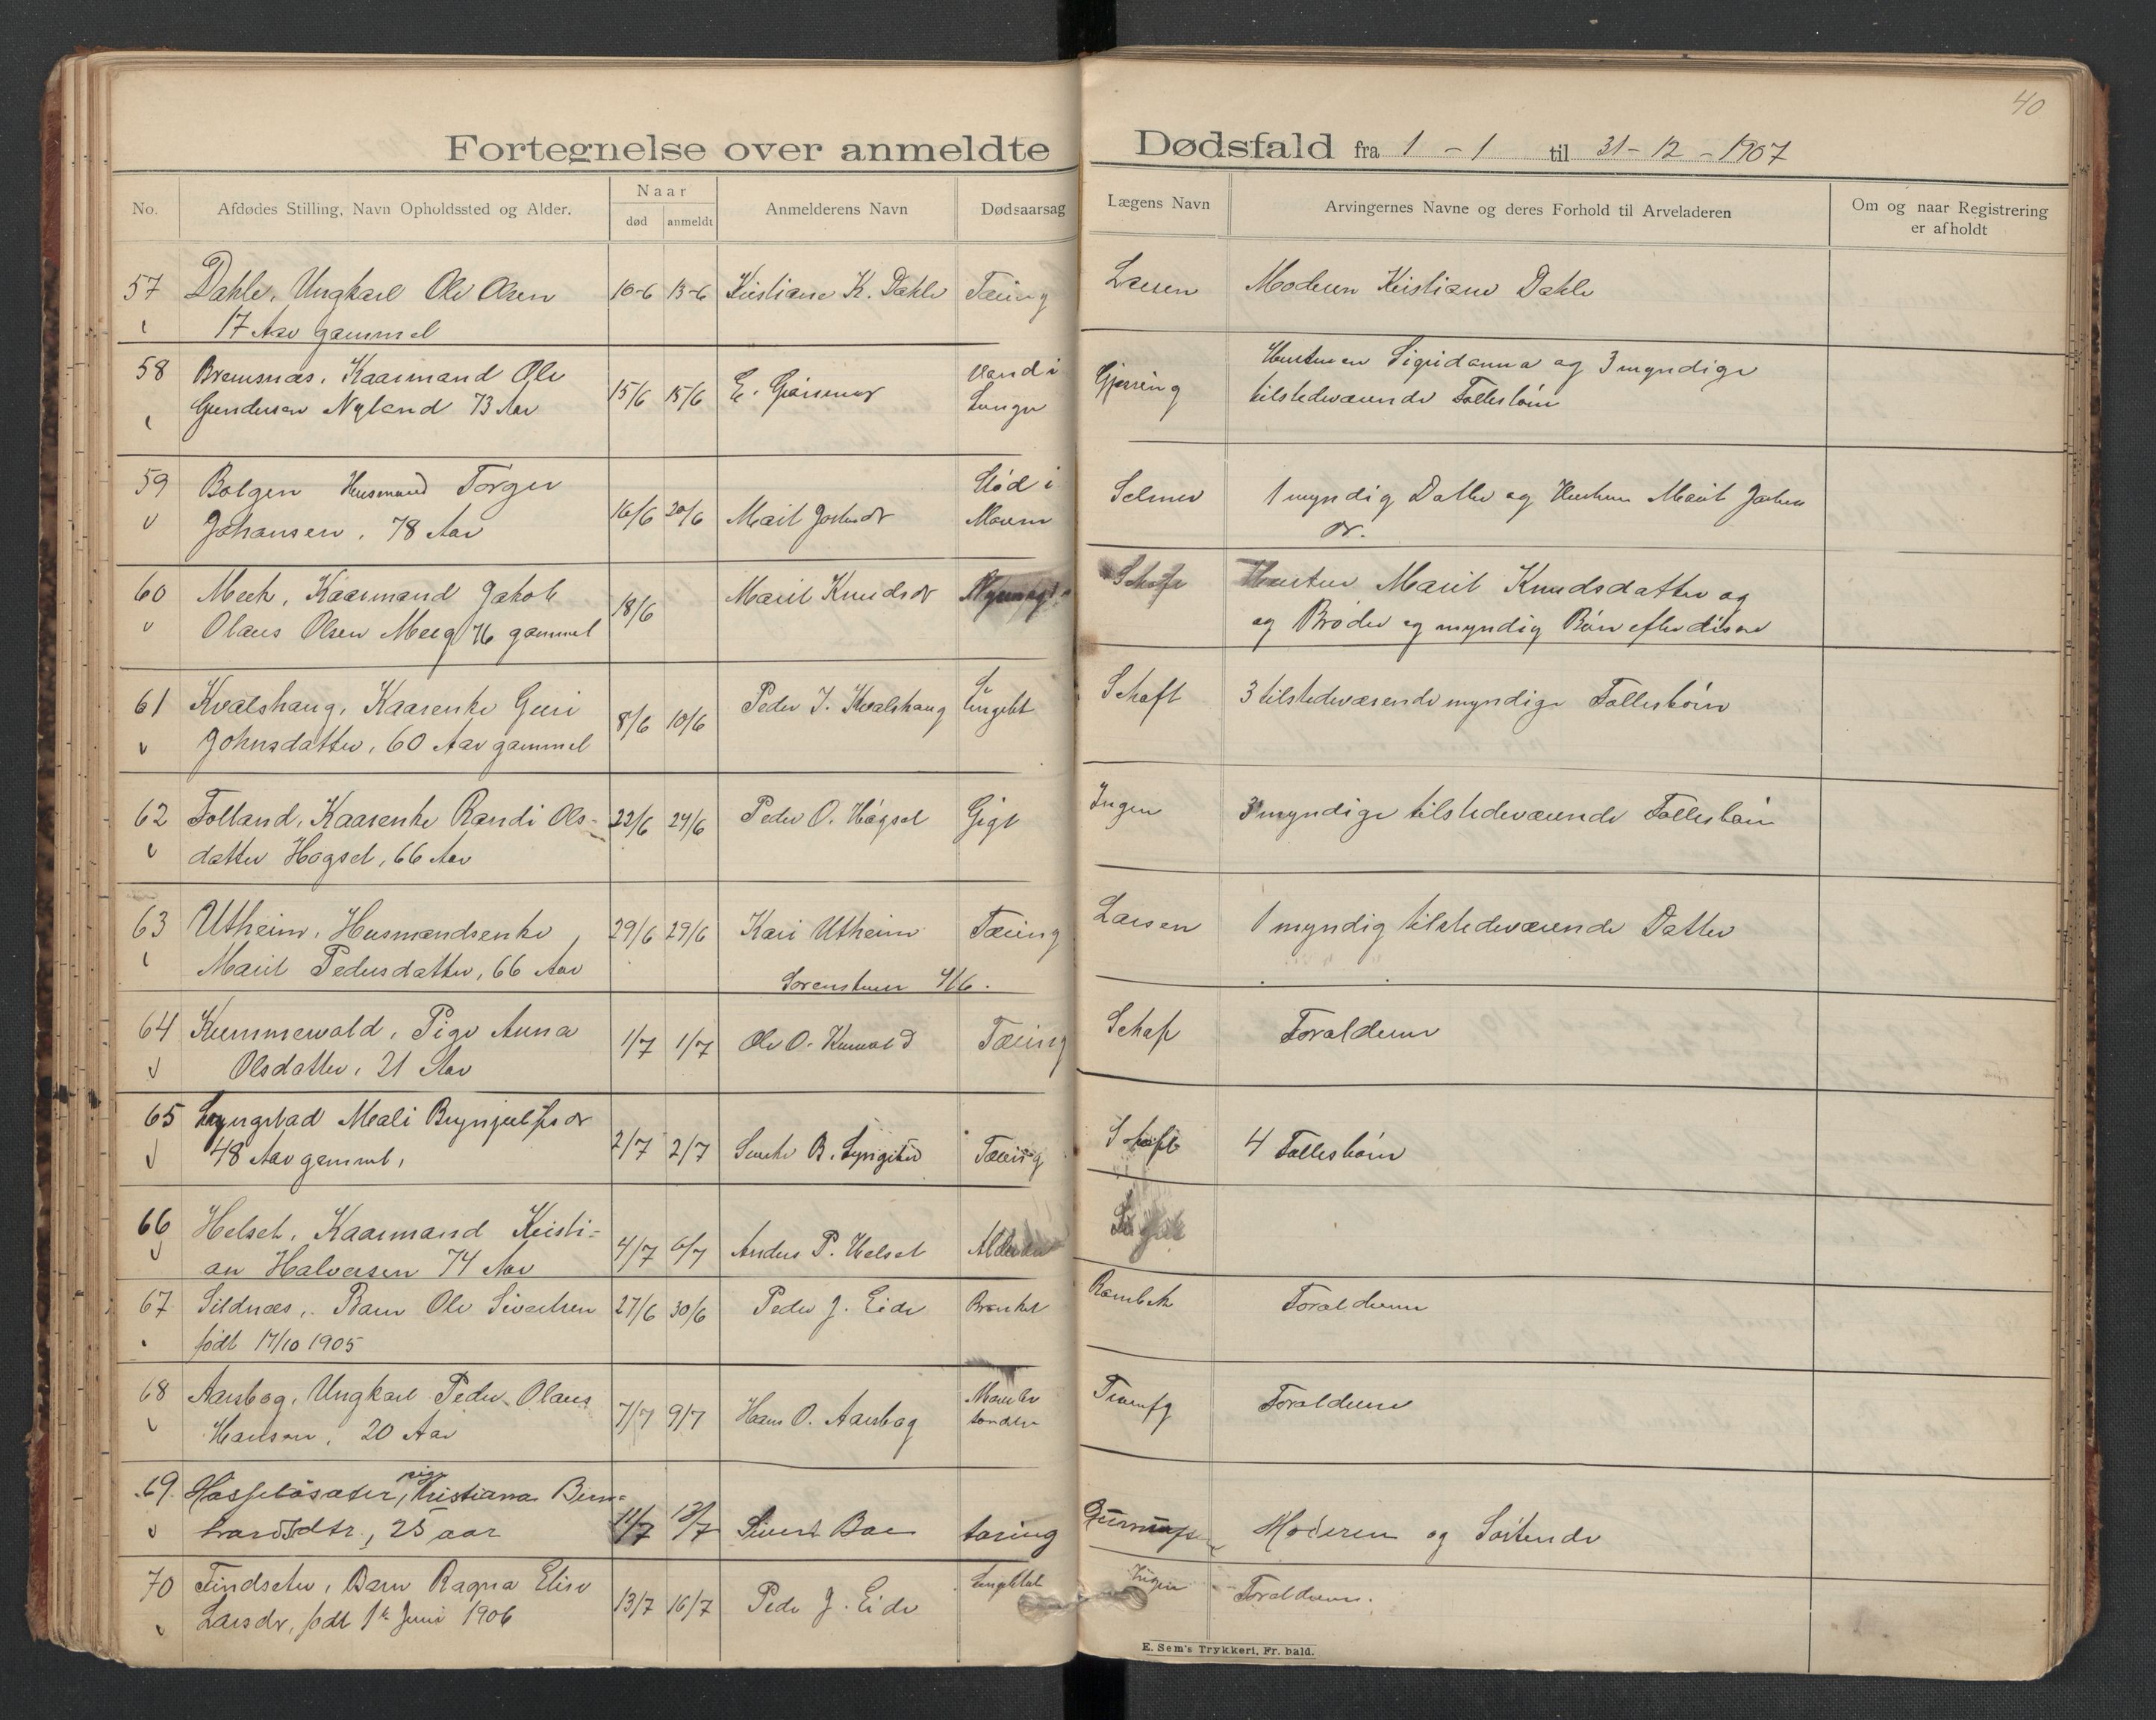 40
Fortegnelse over anmeldte Dødsfald fra 1 - 1 til 31 - 12 - 1907
No.
Afdødes Stilling, Navn Opholdssted og Alder.
Naar
død
anmeldt
Anmelderens Navn
Dødsaarsag
Lægens Navn
Arvingernes Navne og deres Forhold til Arveladeren
Om og naar Registrering
er afholdt
57 Dahle, Ungkarl Ole Olsen 10-6 13-6 Kristiane K. Dahle Tæring Larsen Moderen Kristiane Dahle
17 Aar gammel
58 Bremsnæs, Kaarmand Ole 15/6 15/6 E. Vand i Gjørring Hustruen Sigridanna og 3 myndige
Gundersen Nyland 73 Aar Lunge tilstedeværende Fællesbørn
59 Bolgen Husmand Torger 16/6 20/6 Marit Stød i Selmer 1 myndig Datter og Hustru Marit
Johansen, 78 Aar Maven dr.
60 Meek, Kaarmand Jakob 18/6 Marit Knudsdr Schaft Hustru Marit Knudsdatter og
Olaus Olsen Meeg 76 gammel og Brødre og myndig Børn efter disse
61 Kvalshaug, Kaarenke Guri 8/6 10/6 Peder J. Kvalshaug Schaft 3 tilstedeværende myndige Fællesbørn
Johnsdatter, 60 Aar gammel
62 Folland, Kaarenke Randi Ols- 22/6 24/6 Peder O. Høgset Gigt Ingen 3 myndige tilstedeværende Fællesbørn
datter Høgset, 66 Aar
63 Utheim, Husmandsenke 29/6 29/6 Kari Utheim Tæring Larsen 1 myndig tilstedeværende Datter
Marit Pedersdatter, 66 Aar
64 Kummervold, Pige Anna 1/7 1/7 Ole O. Kumvold Tæring Schaft Forældrene
Olsdatter, 21 Aar
65 Lyngstad Mali Brynjulfsdr 2/7 2/7 B. Lyngstad Tæring Schaft 4 Fællesbørn
48 Aar gammel,
66 Helset, Kaarmand Kristi= 4/7 6/7 Anders P. Helset
an Halvorsen 74 Aar
67 Sildnæs, Barn Ole Sivertsen 27/6 30/6 Peder J. Eide Rambek Forældrene
født 17/10 1905
68 Aarsbog, Ungkarl Peder Olaus 7/7 9/7 Hans O. Aarsbog Forældrene
Hansen, 20 Aar
69. pige Kristiana 11/7 13/7 Sivert Boe tæring Moderen og Søskende
25 aar
70 Findseter, Barn Ragna Elise 13/7 16/7 Peder J. Eide Ingen Forældrene.
Larsdr, født 1te Juni 1906
E. Sem's Trykkeri, Fr. hald.